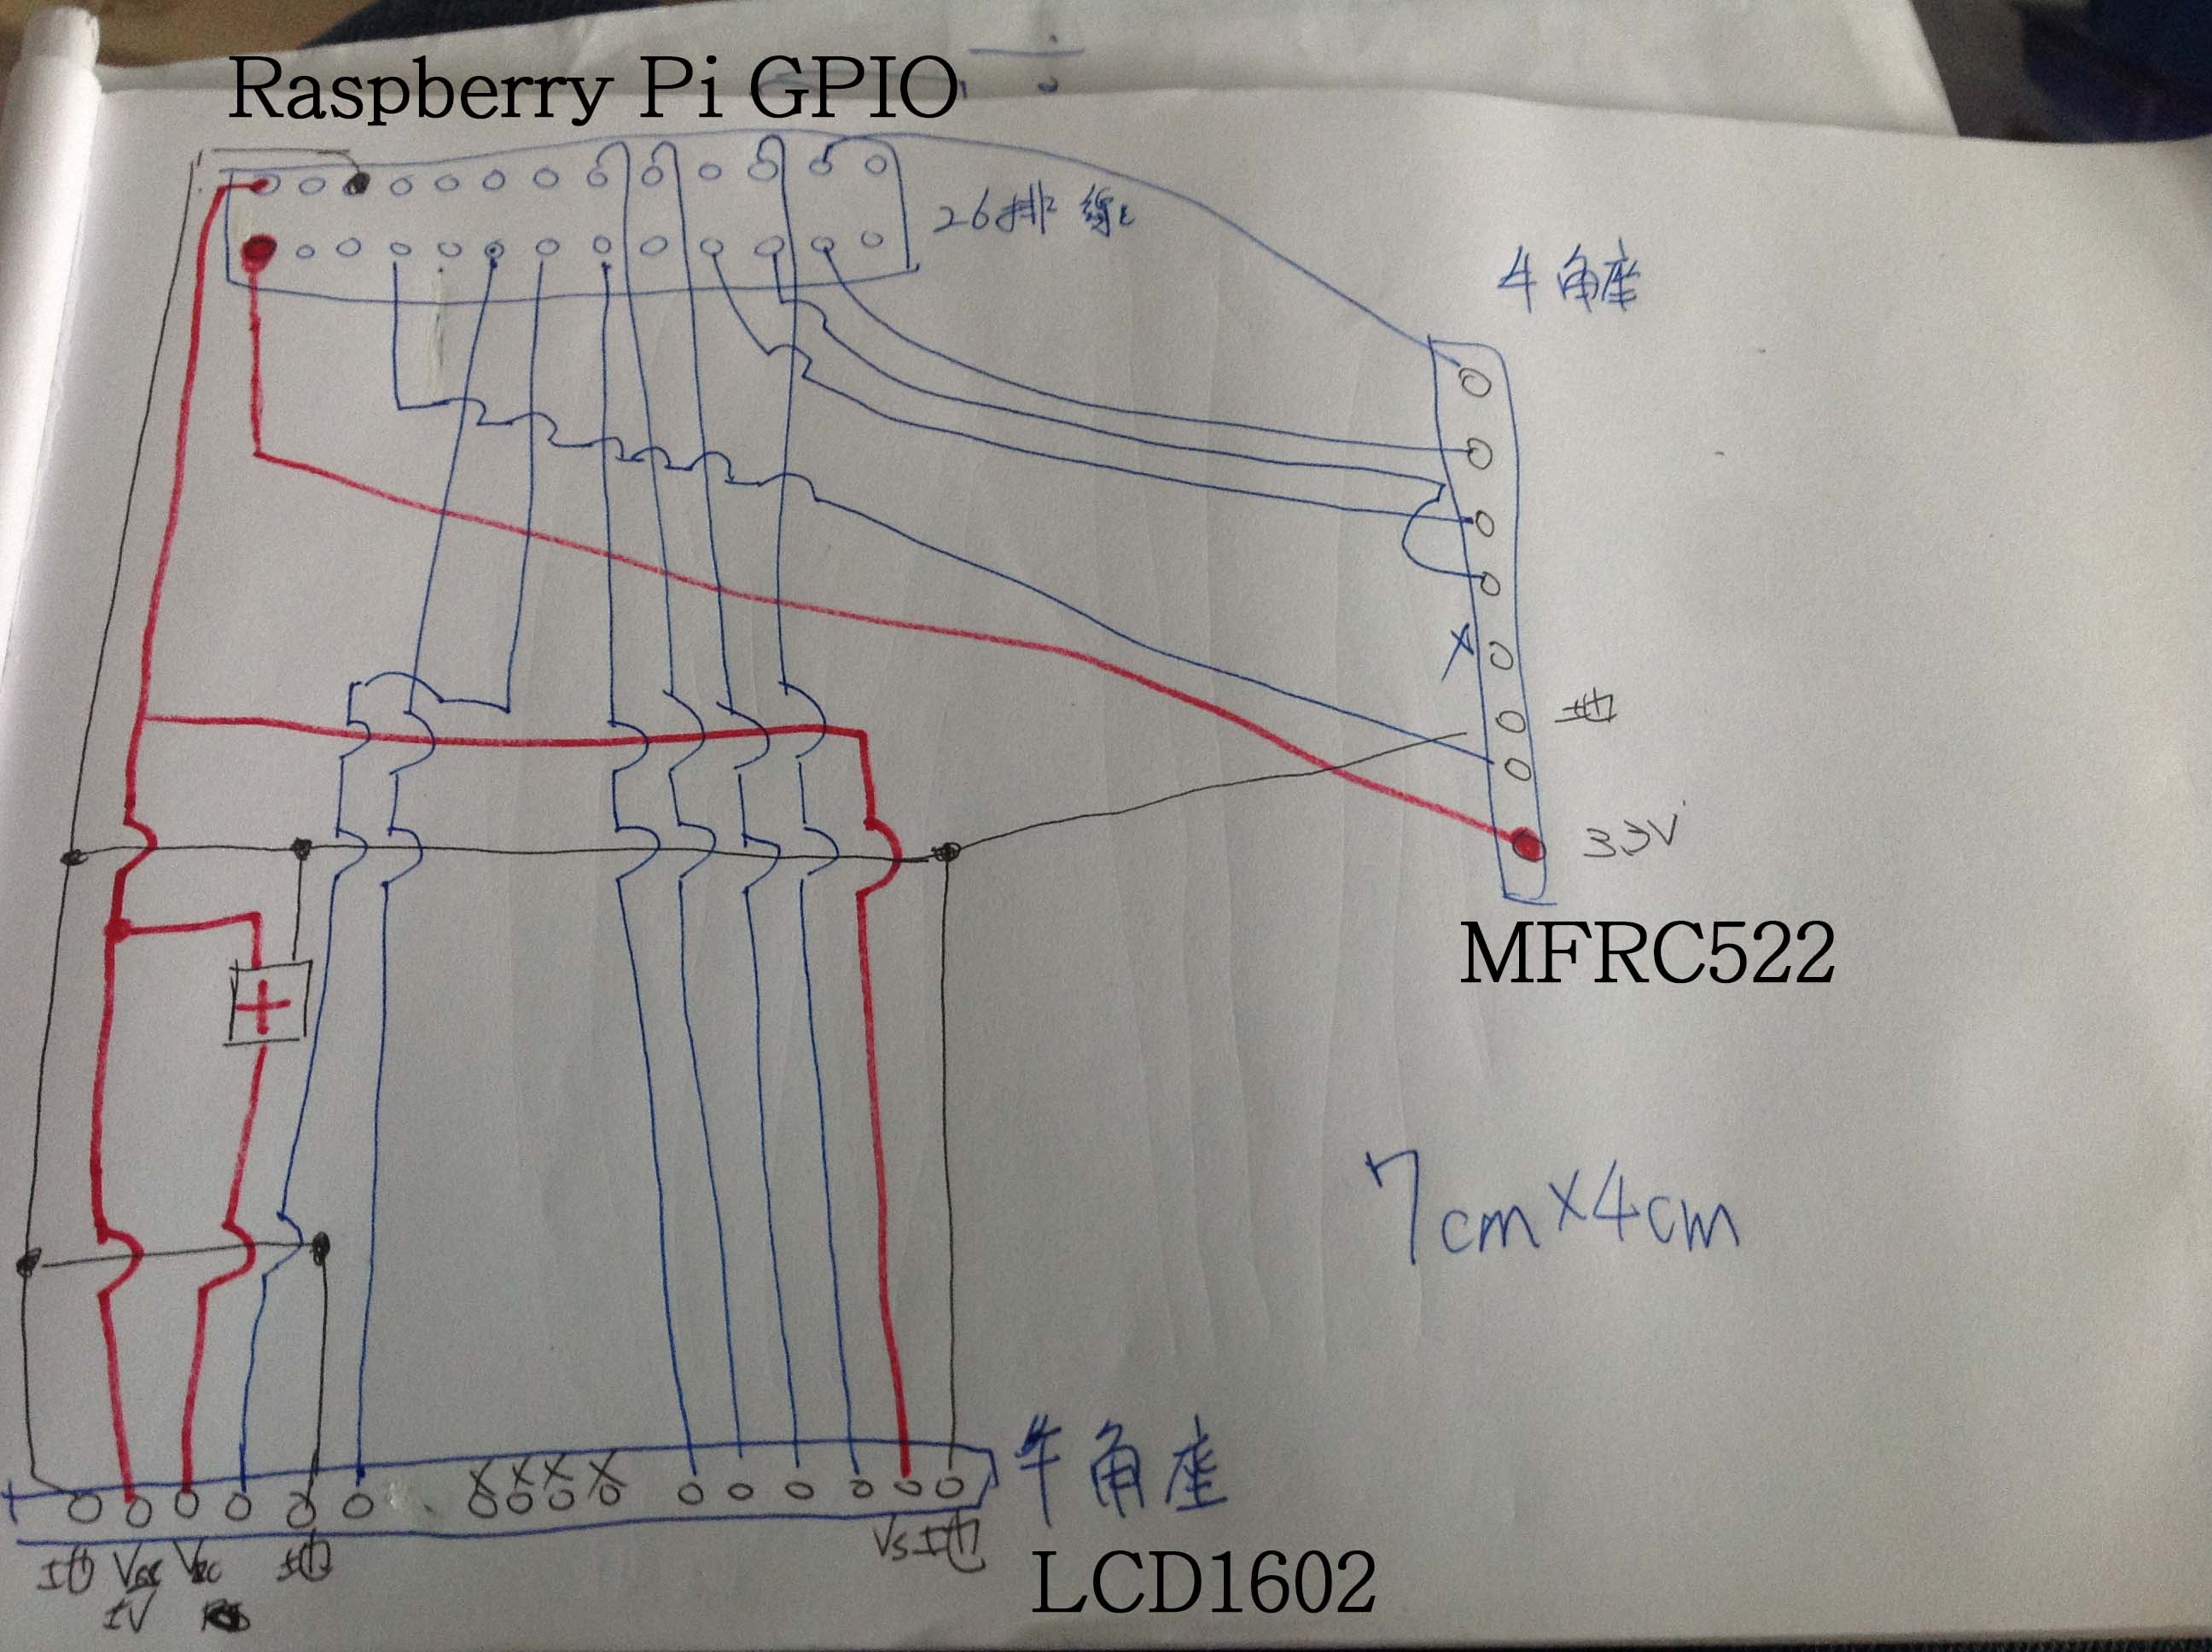 Raspberry Pi GPIO
26排线
牛角座
X
地
3.3V
MFRC522
7cm×4cm
X X X X
牛角座
地 Vcc Vcc 地
Vs 地
LCD1602